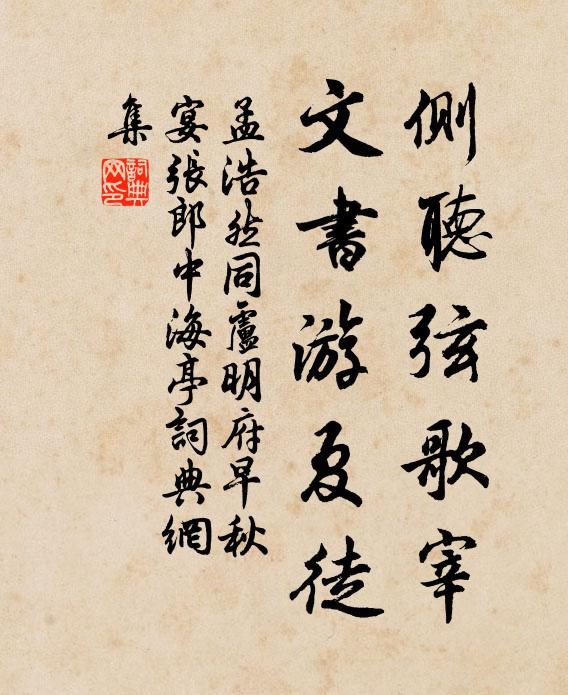 側聽弦歌宰
文書游夏徒
孟浩然同盧明府早秋
宴張郎中海亭詞典網
集
詞典網印